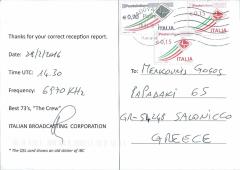 Thanks for your correct reception report.
Date: 28/2/2016
Time UTC: 14.30
Frequency: 6970 KHz
Best 73's, "The Crew"
ITALIAN BROADCASTING CORPORATION
* The QSL card shows an old dinner of IBC
€0,90
ITALIA
€0,15
ITALIA
€0,15
ITALIA
To: MERKOURIS GOGOS
PAPADAKI 65
GR-54248 SALONICCO
GREECE